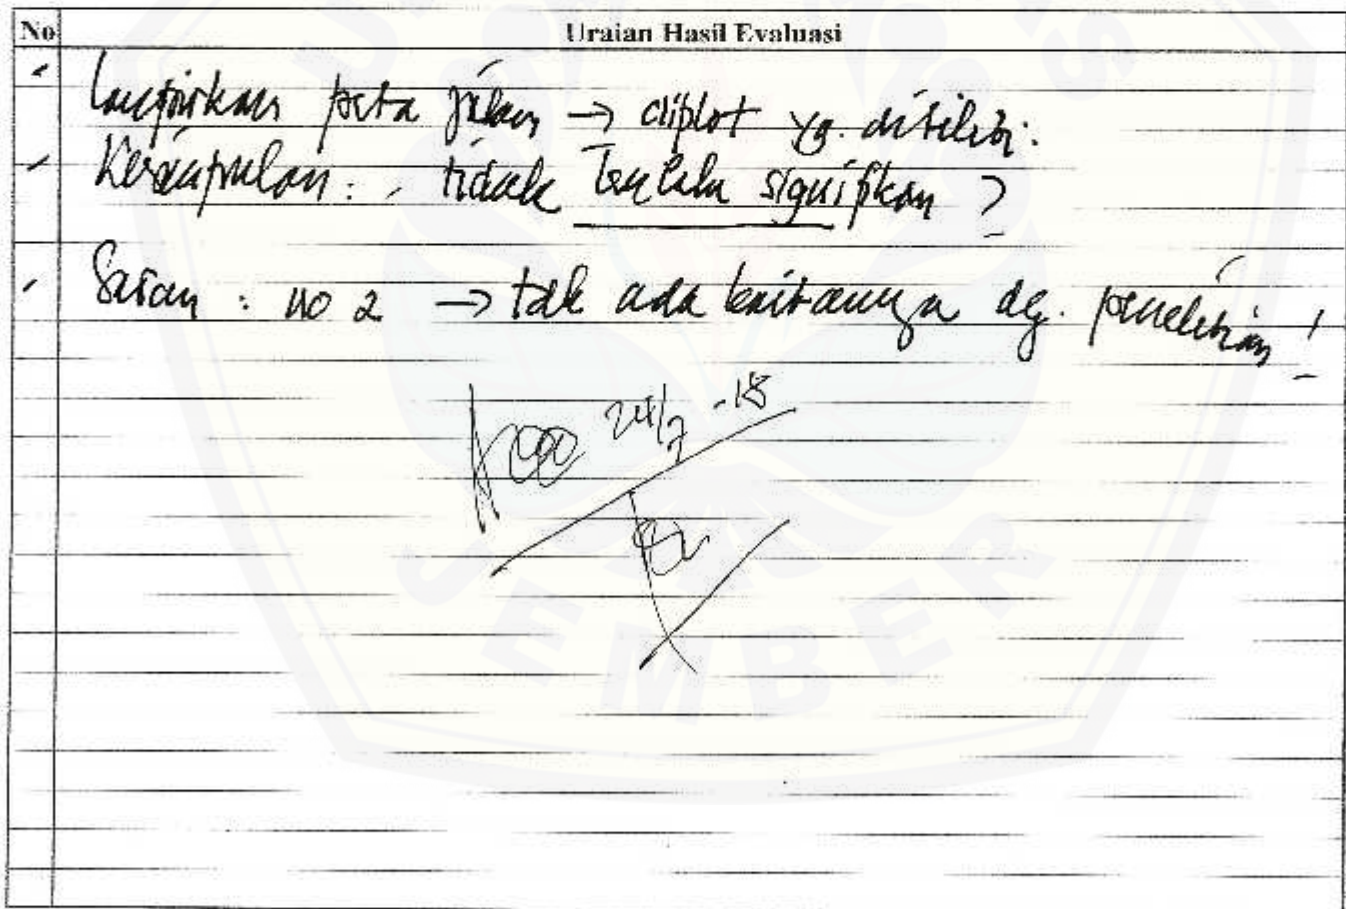 No Uraian Hasil Evaluasi
- Lampirkan peta jalan → diplot yg. diteliti.
- Kesimpulan : tidak terlalu signifikan ?
- Saran : no 2 → tdk ada kaitannya dg. penelitian !
24/7 -18
JEMBER